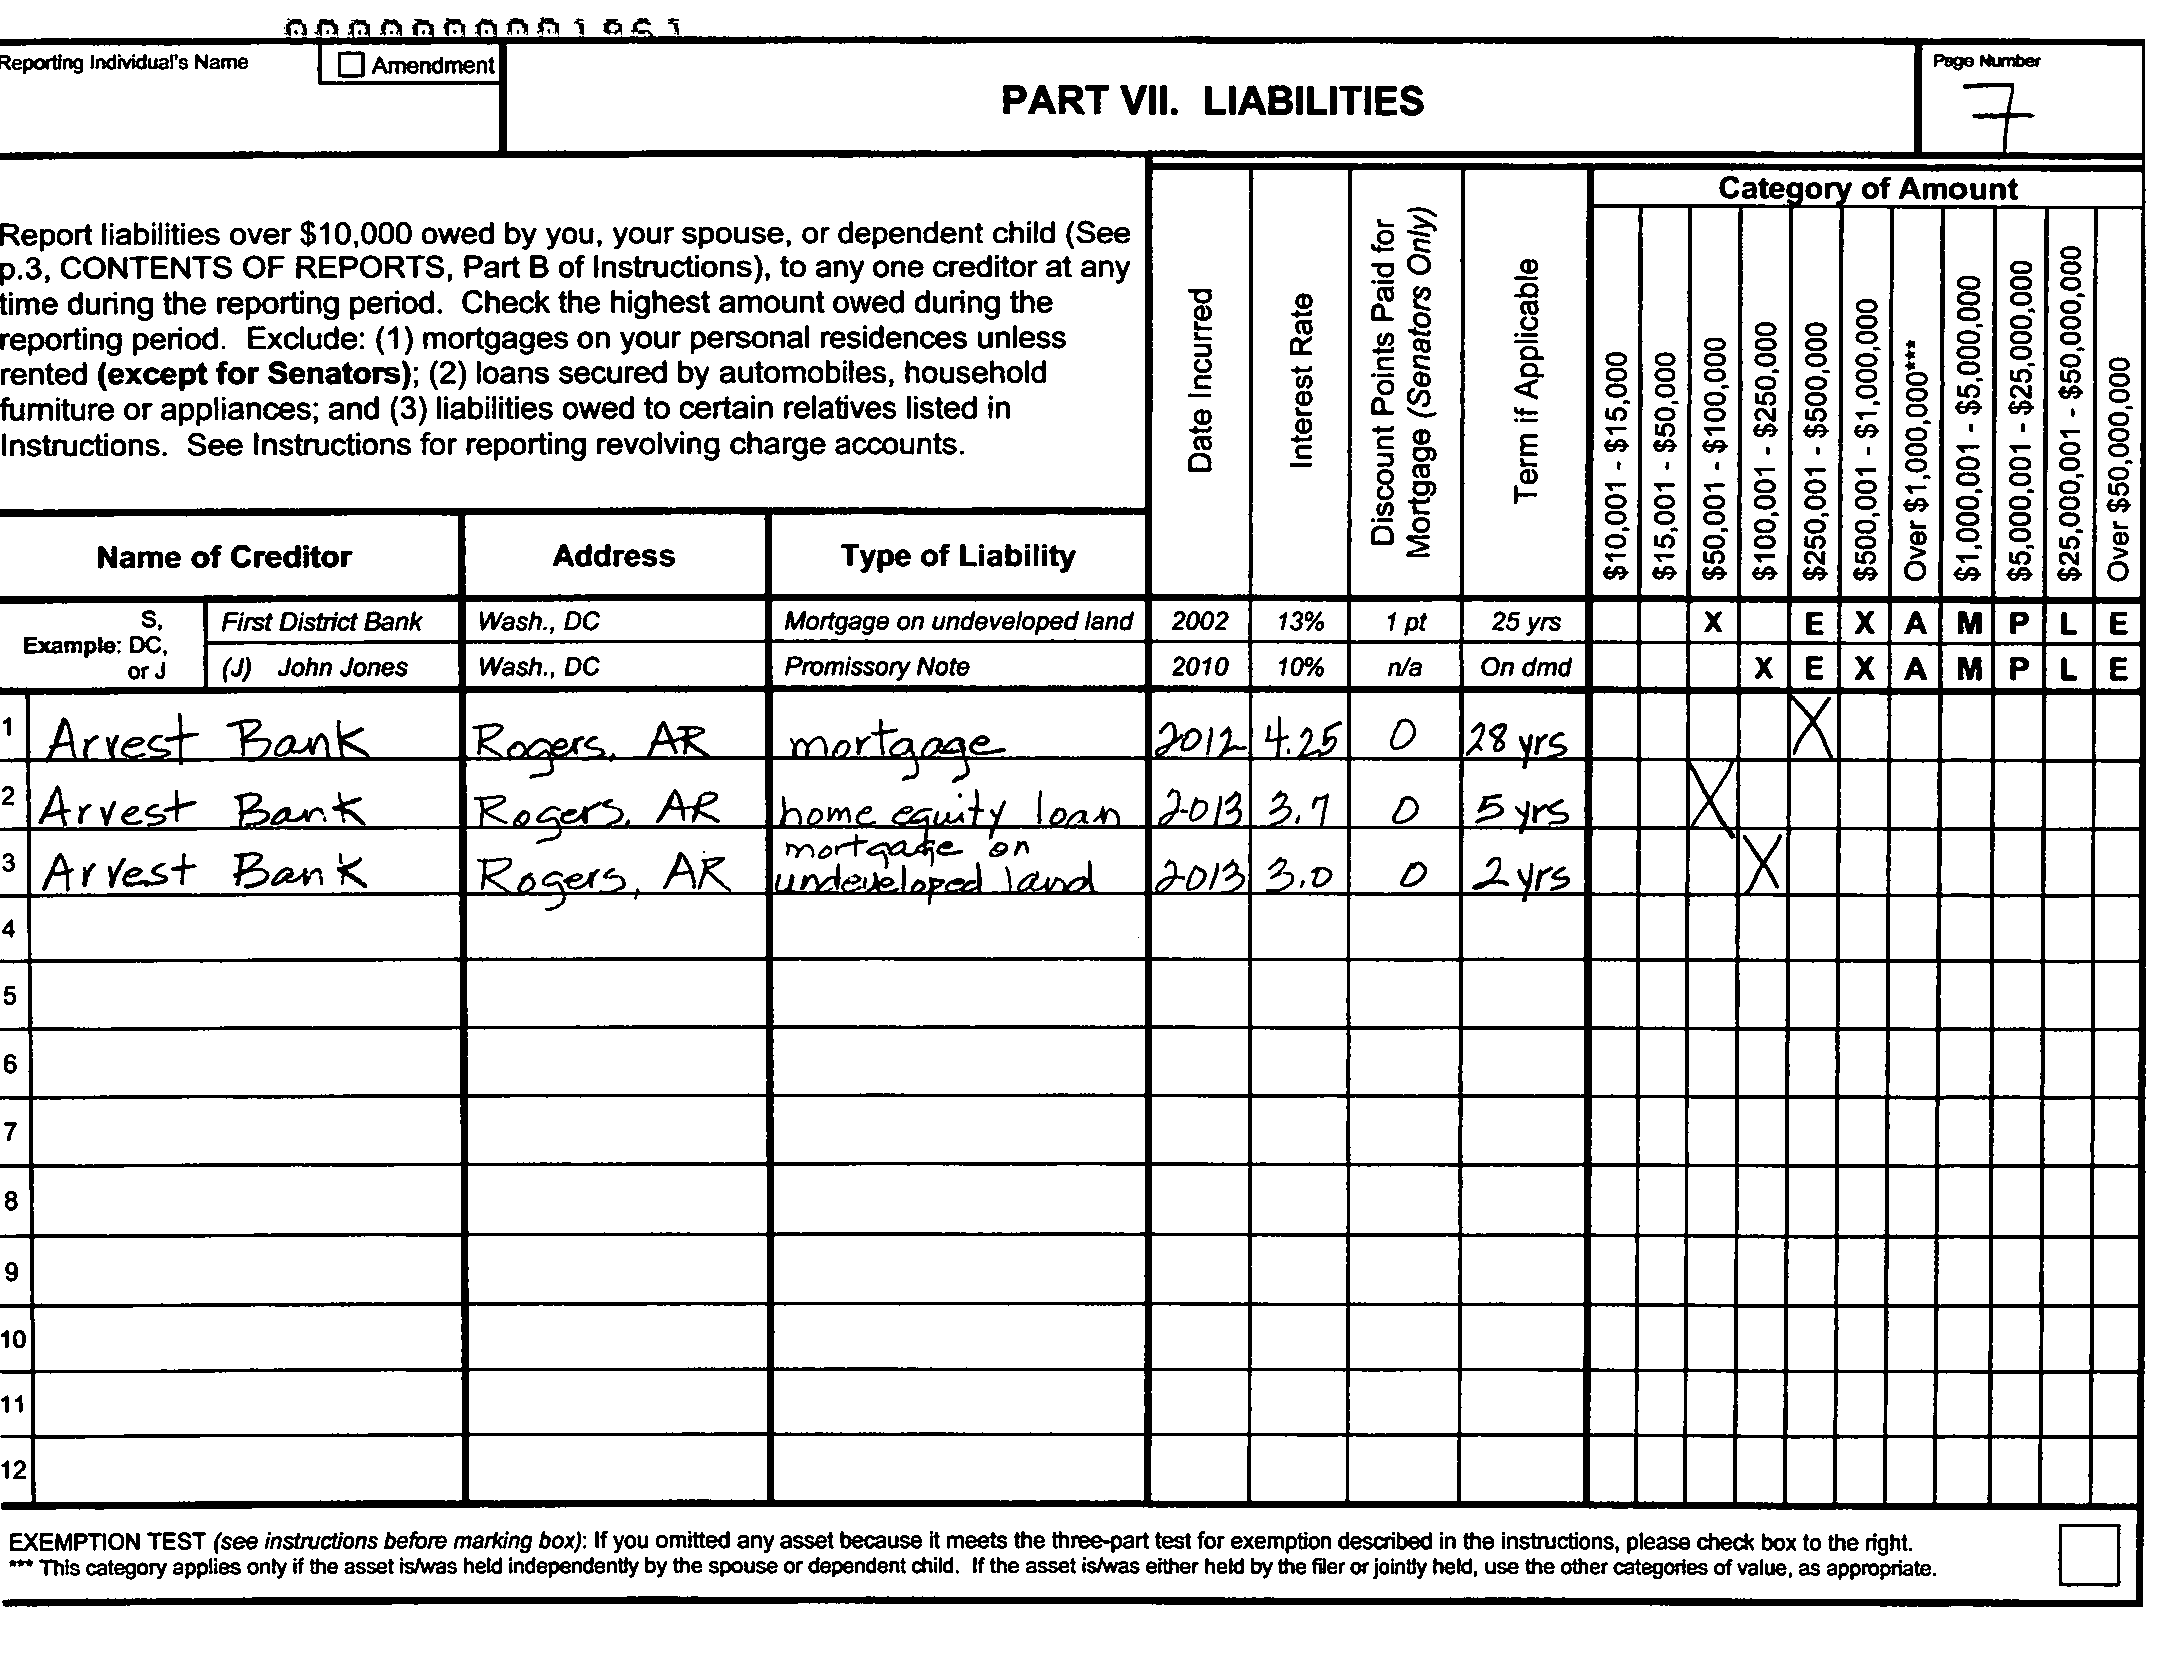 Reporting Individual's Name
☐ Amendment
PART VII. LIABILITIES
Page Number
7
Report liabilities over $10,000 owed by you, your spouse, or dependent child (See
p.3, CONTENTS OF REPORTS, Part B of Instructions), to any one creditor at any
time during the reporting period. Check the highest amount owed during the
reporting period. Exclude: (1) mortgages on your personal residences unless
rented (except for Senators); (2) loans secured by automobiles, household
furniture or appliances; and (3) liabilities owed to certain relatives listed in
Instructions. See Instructions for reporting revolving charge accounts.
Name of Creditor
Address
Type of Liability
Date Incurred
Interest Rate
Discount Points Paid for
Mortgage (Senators Only)
Term if Applicable
Category of Amount
$10,001 - $15,000
$15,001 - $50,000
$50,001 - $100,000
$100,001 - $250,000
$250,001 - $500,000
$500,001 - $1,000,000
Over $1,000,000***
$1,000,001 - $5,000,000
$5,000,001 - $25,000,000
$25,000,001 - $50,000,000
Over $50,000,000
Example: S, DC, or J
First District Bank Wash., DC Mortgage on undeveloped land 2002 13% 1 pt 25 yrs X E X A M P L E
(J) John Jones Wash., DC Promissory Note 2010 10% n/a On dmd X E X A M P L E
1 Arvest Bank Rogers, AR mortgage 2012 4.25 0 28 yrs X
2 Arvest Bank Rogers, AR home equity loan 2013 3.7 0 5 yrs X
3 Arvest Bank Rogers, AR mortgage on undeveloped land 2013 3.0 0 2 yrs X
4
5
6
7
8
9
10
11
12
EXEMPTION TEST (see instructions before marking box): If you omitted any asset because it meets the three-part test for exemption described in the instructions, please check box to the right.
*** This category applies only if the asset is/was held independently by the spouse or dependent child. If the asset is/was either held by the filer or jointly held, use the other categories of value, as appropriate.